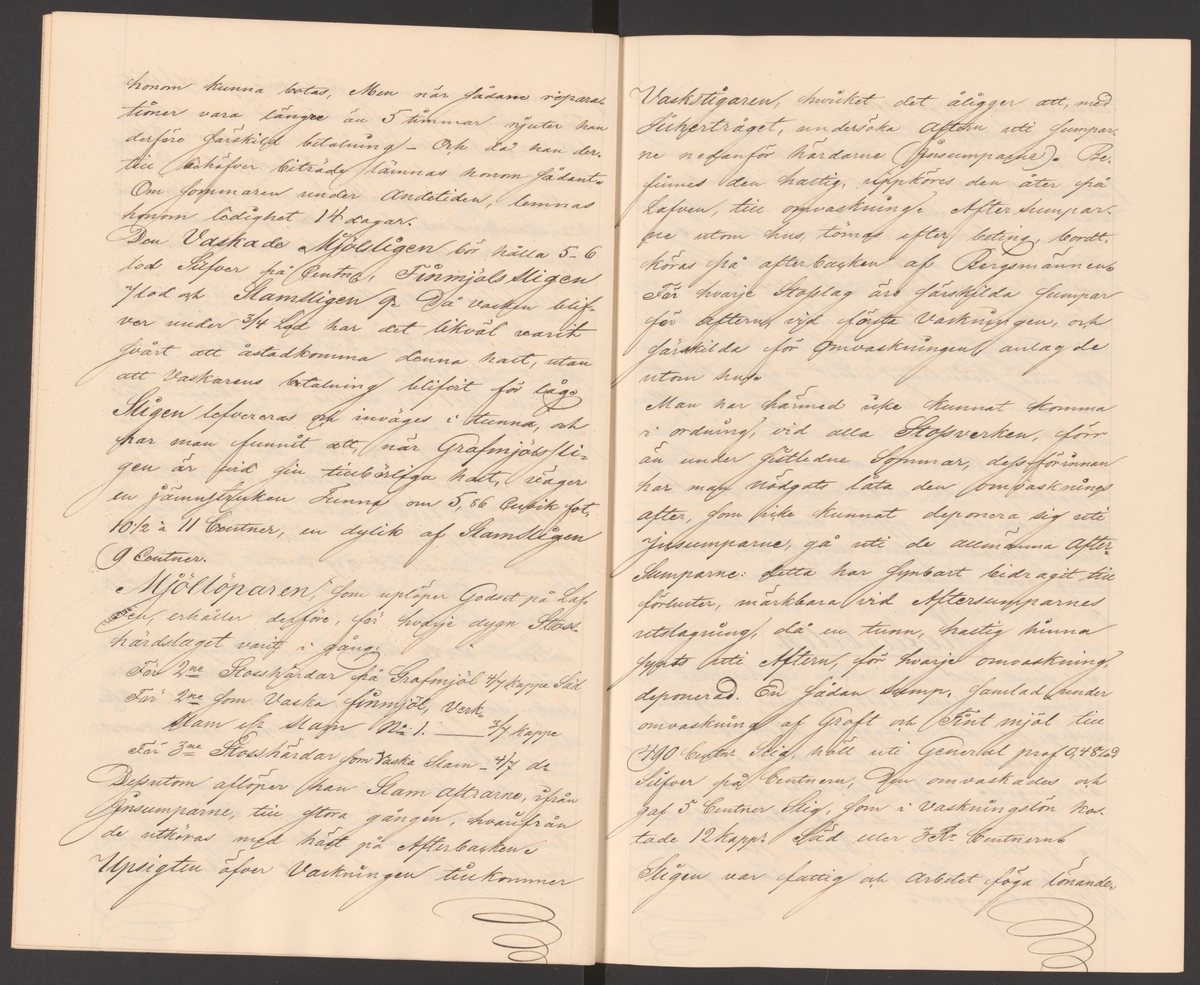 honom kunna botas, Men när sådane repara-
tioner vara längre än 5 timmar njuter han
derföre särskild betalning – Och då han der-
till behöfver biträde lämnas honom sådant.
Om sommaren under Andetiden, lemnas
honom ledighet 14 dagar.
Den Vaskade Mjölsligen bör hålla 5-6
lod Silfver på Centn., Finmjöls Sligen
7 lod och Slamsligen 9. Då vasken blif-
ver under 3/4 Lod har det likväl varit
svårt att åstadkomma denna halt, utan
att Vaskarens betalning blifvit för låg.
Sligen lefvereras och inväges i tunna, och
har man funnit att, när Grofmjölssli-
gen är vid sin tillbörliga halt, väger
en jämnstruken Tunna om 5,86 Cubik fot,
10 1/2 à 11 Centner, en dylik af Slamsligen
9 Centner.
Mjöllöparen, som uplöper Godset på Laf-
ven, erhåller derföre, för hvarje dygn Stoss-
härdslaget varit i gång:
För 2ne Stosshärdar på Grofmjöl 4/7 kappe Säd
För 2ne som Vaska finmjöl, Verk-
Slam eller Slam No 1. — 3/7 kappe
För 3ne Stosshärdar som Vaska Slam – 4/7 do
Dessutom aflöper han Slam aftrarne, ifrån
Insumparne, till stora gången, hvarifrån
de utköras med häst på Afterbacken.
Upsigten öfver Vaskningen tillkommer
Vaskstigaren, hvilket det åligger att, med
Sikertråget, undersöka Aftern uti sumpar-
ne nedanför härdarne (Insumparne). Be-
finnes den haltig, uppköres den åter på
Lafven, till omvaskning. Aftersumpar-
ne utom hus, tömas efter beting, bordt-
köras på afterbacken af Bergsmännen.
För hvarje Stosslag äro särskilda sumpar
för Aftern, vid första Vaskningen, och
särskilda för Omvaskningen, anlagde
utom hus.
Man har härmed icke kunnat komma
i ordning, vid alla Stossverken, förr
än under sistledne Sommar, dessförinnan
har man nödgats låta den omvasknings
after, som icke kunnat deponera sig uti
Insumparne, gå uti de allmänna After-
Sumparne: detta har synbart bidragit till
förluster, märkbara vid Aftersumparnes
utslagning, då en tunn, haltig hinna
synts uti Aftern, för hvarje omvaskning,
deponerad. En sådan sump, samlad under
omvaskning af Groft och Fint mjöl till
490 Centnr Slig, höll uti General prof 0,48 Lod
Silfver på Centnern, Den omvaskades och
gaf 5 Centner Slig, som i Vaskningslön kos-
tade 12 Kappr Säd eller 3 Rd Centnern.
Sligen var fattig och arbetet föga lönande.